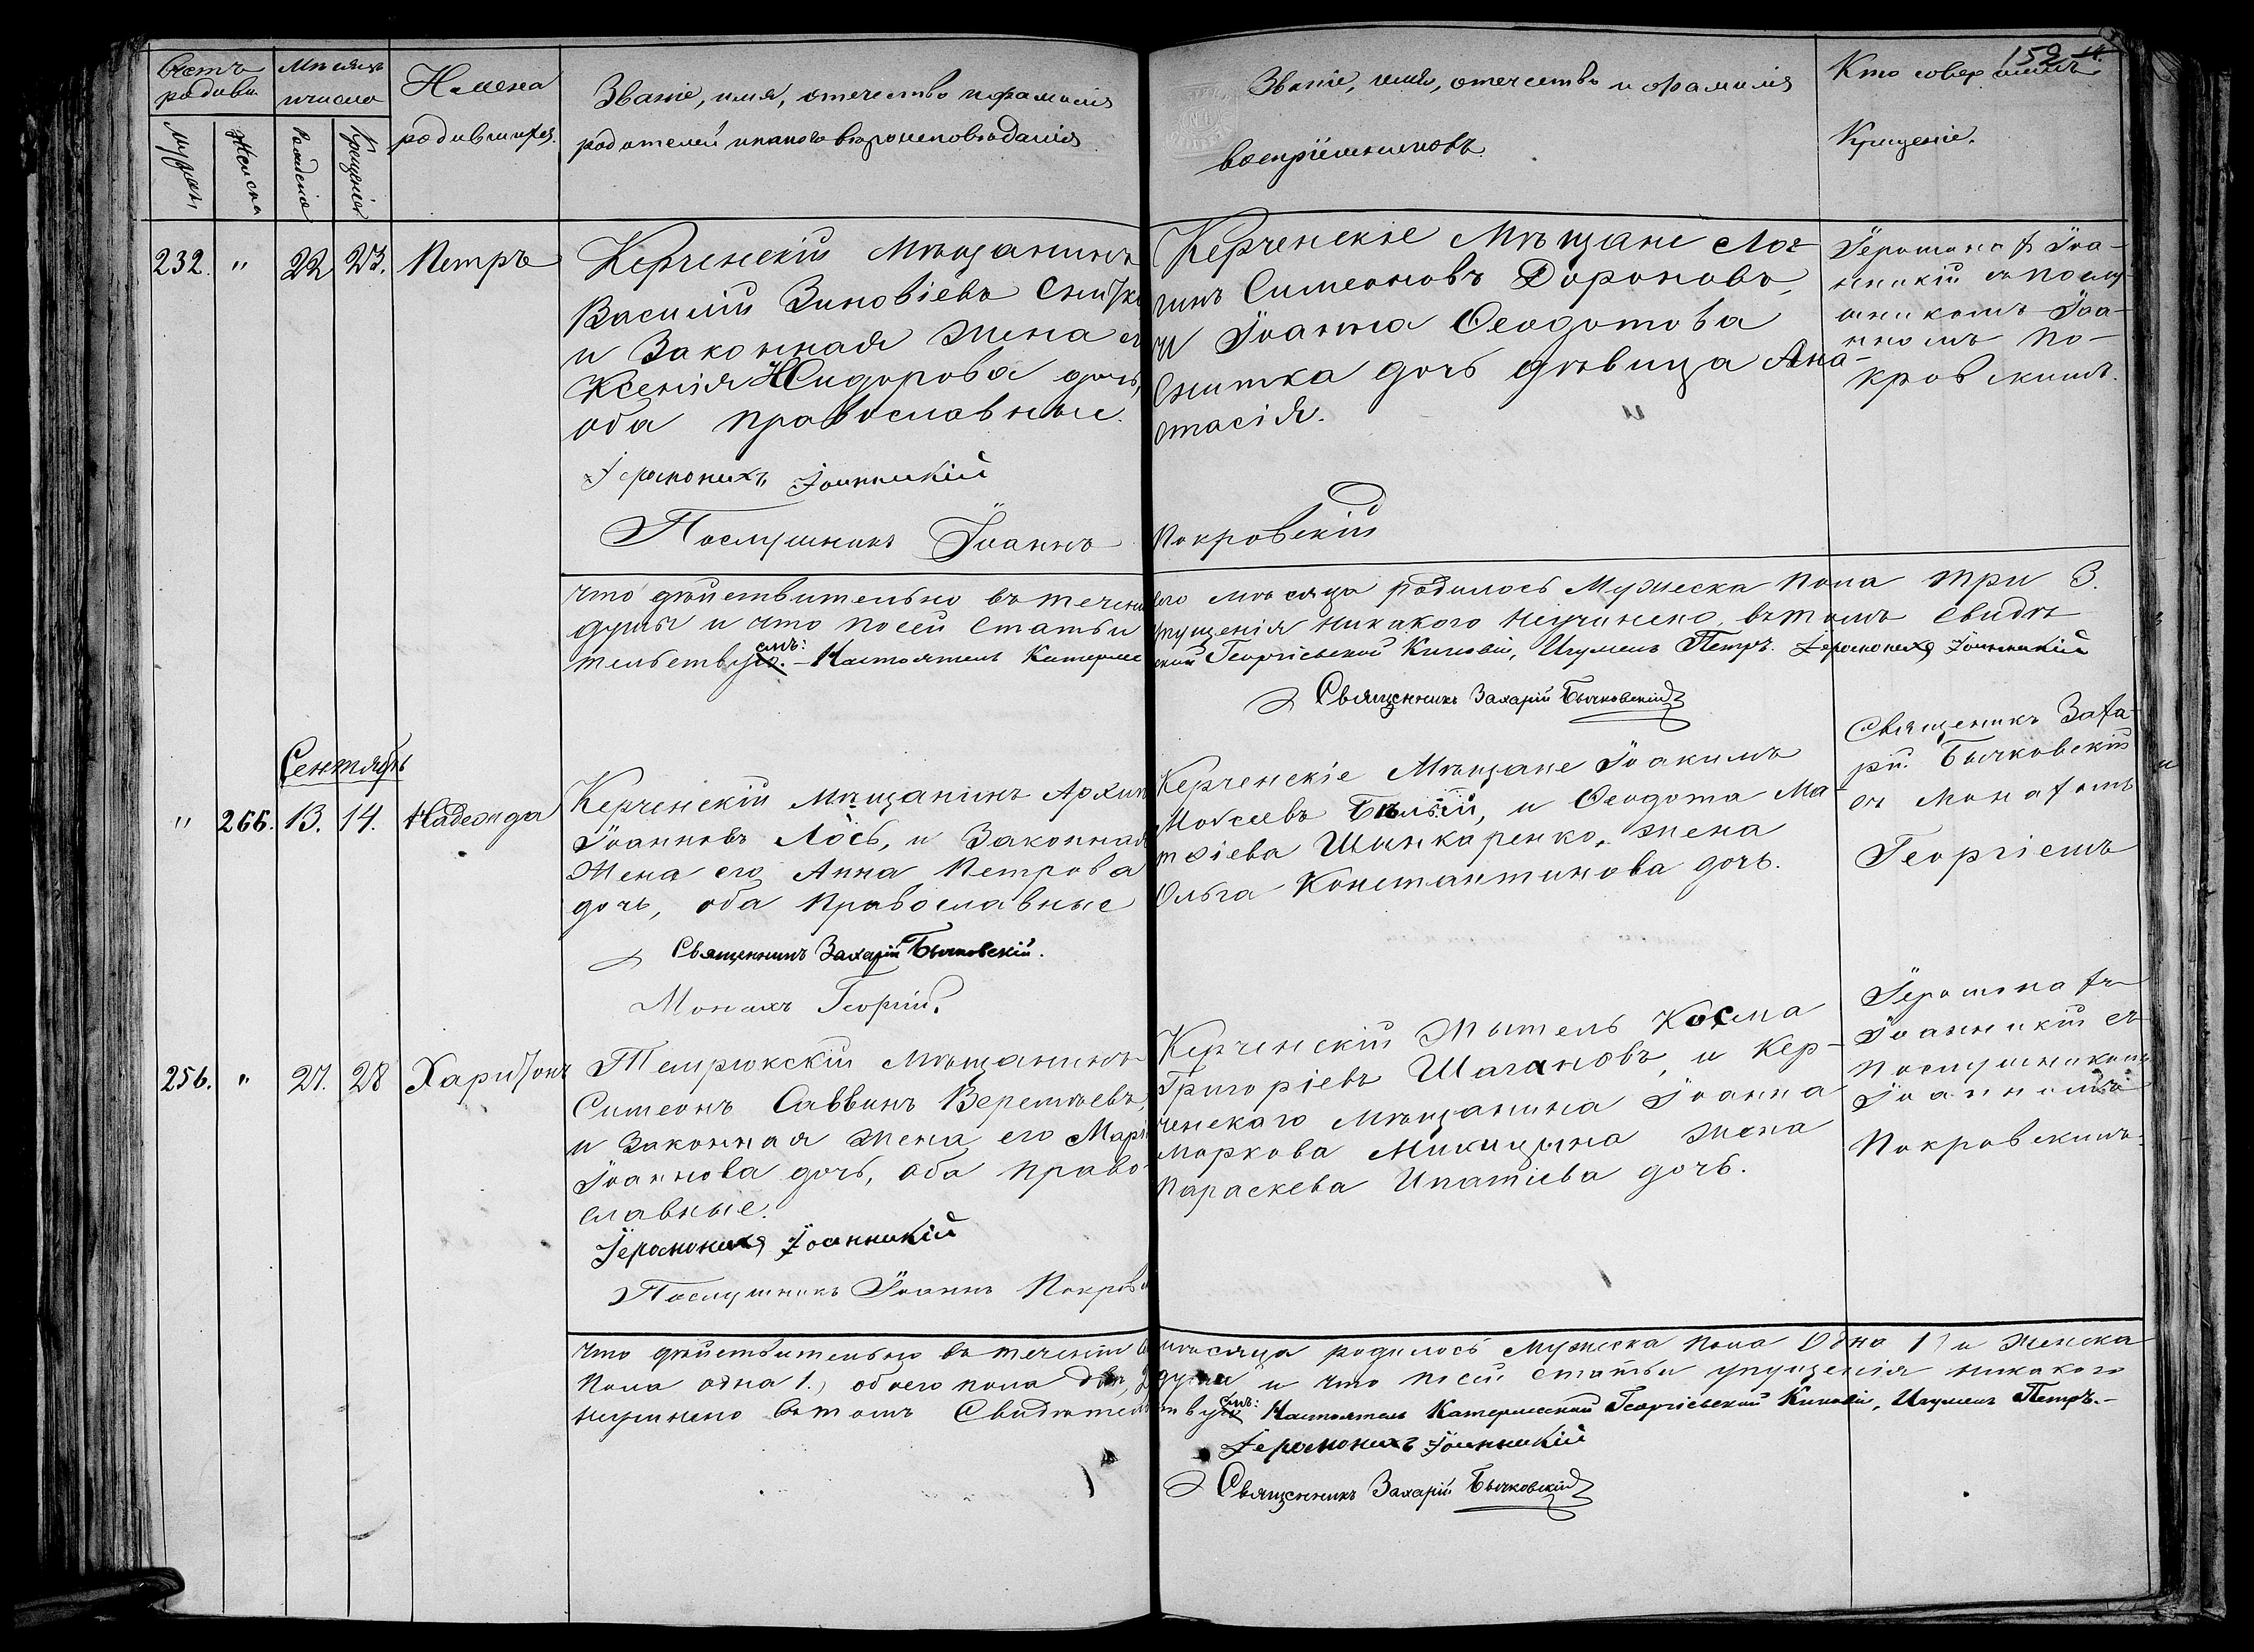 152
Счетъ родивш.
Мѣсяцъ и число
Имена
родившихся.
Званіе, имя, отчество и фамилія
родителей и какого вѣроисповѣданія
Званіе, имя, отчество и фамилія
воспріемниковъ.
Кто совершилъ
Крещеніе.
Мужеска
Женска
Рожденія
Крещенія
232. " 22 23. Петръ
Керченскій Мѣщанинъ
Василій Зиновіевъ Снитко
и Законная Жена его
Ксенія Исидорова дочь,
оба православные.
Іеромонахъ Іоанникій
Послушникъ Іоаннъ Покровскій
Керченскіе Мѣщане Лог-
гинъ Симеоновъ Дороновъ,
и Іоанна Ѳеодотова
Снитка дочь дѣвица Ана-
стасія.
Іеромонахъ Іоа-
нникій съ послу-
шникомъ Іоа-
нномъ По-
кровскимъ.
Что дѣйствительно въ теченіи сего мѣсяца родилось Мужеска пола три 3.
души и что по сей Статьи упущенія никакого неучинено, въ томъ Свидѣ
тельствуемъ: – Настоятель Катерлесской Георгіевской Киновіи, Игуменъ Петръ. Іеромонахъ Іоанникій
Священникъ Захарій Бычковскій
Сентябрь
" 266. 13. 14. Надежда
Керченскій Мѣщанинъ Архип
Іоанновъ Лось, и Законная
Жена его Анна Петрова
дочь, оба Православные
Священникъ Захарій Бычковскій.
Монахъ Георгій.
Керченскіе Мѣщане Іоакимъ
Моѵсеевъ Бѣлый, и Ѳеодота Ма-
тѳіева Шинкаренко, жена
Ольга Константинова дочь.
Священикъ Заха-
рій Бычковскій
съ Монахомъ
Георгіемъ
256. " 27. 28 Харитонъ
Темрюкскій Мѣщанинъ
Симеонъ Саввинъ Веретьевъ,
и Законная жена его Марія
Іоаннова дочь, оба право-
славные.
Іеромонахъ Іоанникій
Послушникъ Іоаннъ Покров
Керченскій Житель Косма
Григоріевъ Шагановъ, и Кер-
ченскаго Мѣщанина Іоанна
Маркова Микицына жена
Параскева Ипатіева дочь.
Іеромонахъ
Іоанникій съ
Послушникомъ
Іоанномъ
Покровскимъ.
Что дѣйствительно въ теченіи мѣсяца родилось Мужеска пола Одна 1) и Женска
Пола одна 1.) обоего пола двѣ, 2 души и что по сей Статьи упущенія никакого
неучинено въ томъ Свидѣтельствуемъ: Настоятель Катерлесской Георгіевской Киновіи, Игуменъ Петръ.–
Іеромонахъ Іоанникій
Священникъ Захарій Бычковскій